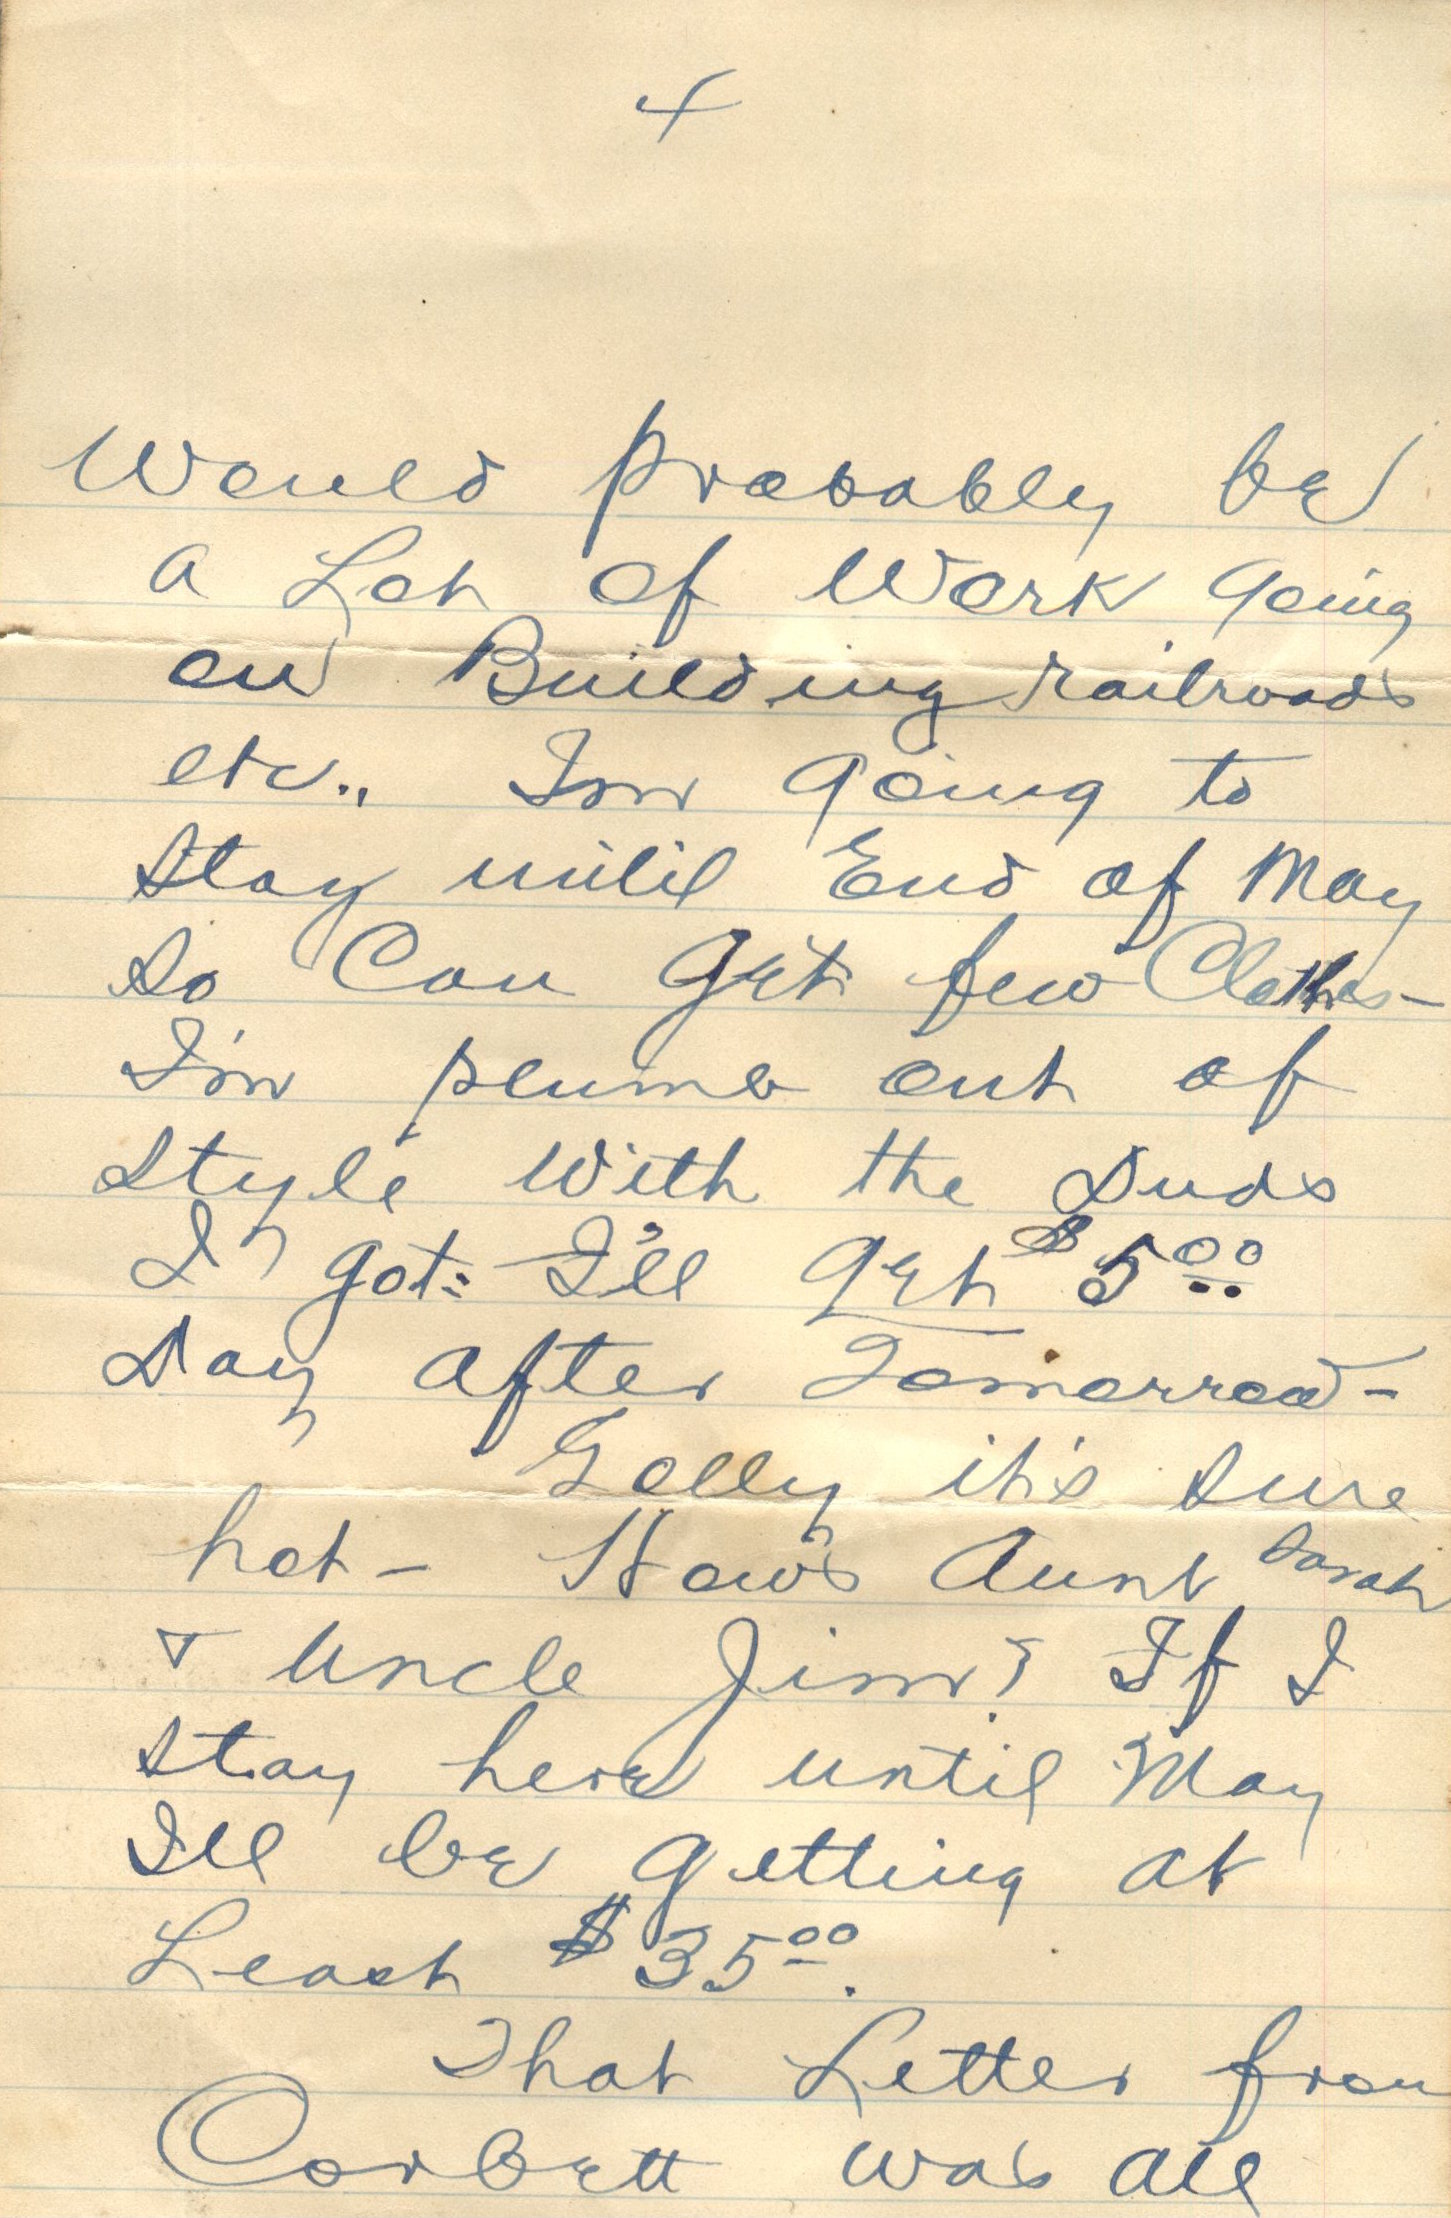 4
Would probably be
a Lot of Work going
on Building railroads
etc.. Im going to
stay until End of May
so Can get few Clothes-
I'm plumb out of
style with the Duds
I got= I'll get $5.00
Day after Tomorrow-
Golly it's sure
hot- How's Aunt Sarah
& Uncle Jim? If I
stay here until May
I'll be getting at
Least $35.00.
That Letter from
Corbett was all